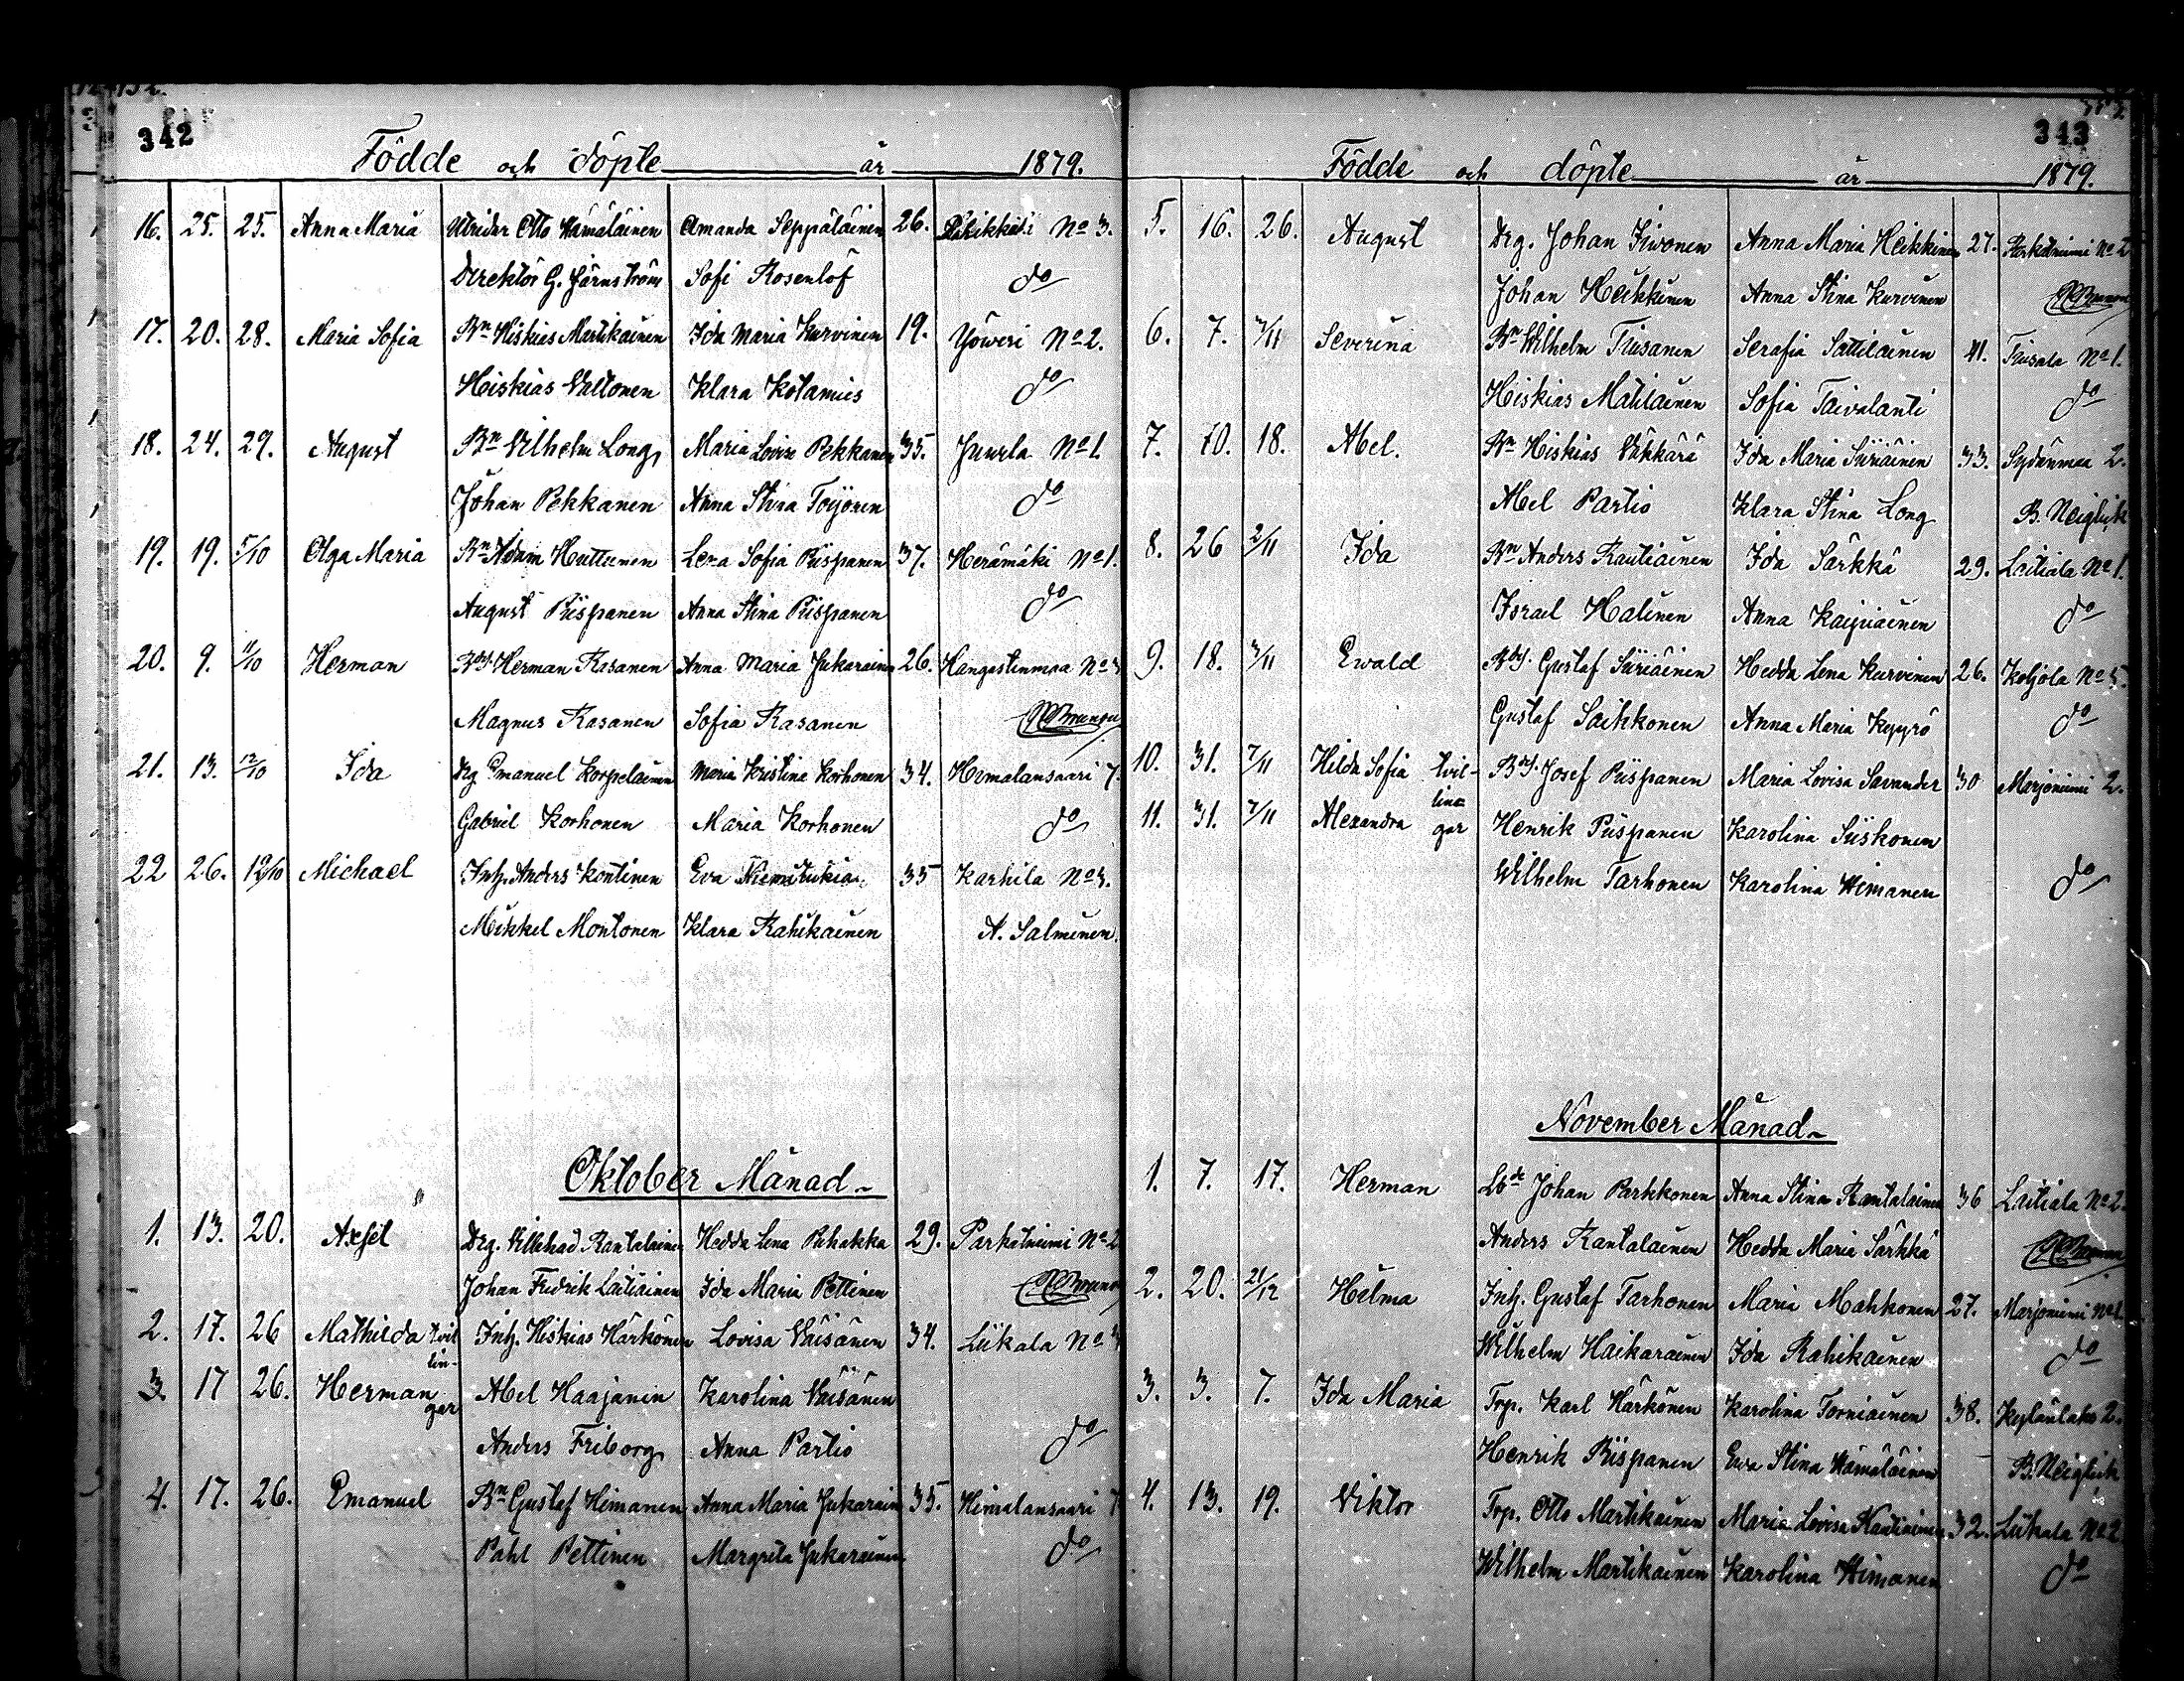 342
Födde och döpte år 1879.
16. 25. 25. Anna Maria Otto Hämäläinen Amanda Seppäläinen 26. No 3.
Direktör G. Järnström Sofi Rosenlöf do
17. 20. 28. Maria Sofia Bn Hiskias Martikainen Ida Maria Kurvinen 19. Yöweri No 2.
Heiskias Valtonen Klara Kotamies do
18. 24. 29. August Bn Vilhelm Long Maria Lovisa Pekkanen 35. Juurla No 1.
Johan Pekkanen Anna Stina Toijonen do
19. 19. 5/10 Olga Maria Bn Adam Huttunen Lena Sofia Piispanen 37. Herämäki No 1.
August Piispanen Anna Stina Piispanen do
20. 9. 11/10 Herman Herman Rasanen Anna Maria Jukarainen 26. Hangastenmaa No 3
Magnus Rasanen Sofia Rasanen
21. 13. 12/10 Ida Drg Emanuel Korpelainen Maria Kristina Korhonen 34. Himalansaari 7.
Gabriel Korhonen Maria Korhonen do
22 26. 12/10 Michael Inh. Anders Kontinen Eva 35 Karhila No 3.
Mikkel Montonen Klara Rahikainen A. Salminen.
Oktober Månad
1. 13. 20. Axel Drg. Villehad Rantalainen Hedda Lena Pahakka 29. Parkatniemi No 2
Johan Fredrik Laitiainen Ida Maria Pettinen
2. 17. 26 Mathilda tvil Inh. Hiskias Härkönen Lovisa Väisänen 34. Liikala No
lin-
3. 17 26. Herman gar Abel Haajanen Karolina Väisänen
Anders Friborg Anna Partio do
4. 17. 26. Emanuel Bn Gustaf Himanen Anna Maria Jukarain 35. Himalansaari 7
Påhl Pettinen Margreta Jukarainen do
343
Födde och döpte år 1879.
5. 16. 26. August Drg. Johan Iivonen Anna Maria Heikkinen 27. Parkatniemi No 2
Johan Heikkinen Anna Stina Kurvinen
6. 7. 7/11 Severina Bn Wilhelm Tiusanen Serafia Sattilainen 41. Tiusala No 1.
Heiskias Matilainen Sofia Taivalanti do
7. 10. 18. Abel. Bn Heiskias Väkkärä Ida Maria Siiriäinen 33. Sydänmaa 2.
Abel Partio Klara Stina Long B. Neiglick
8. 26 2/11 Ida Bn Anders Rautiainen Ida Särkkä 29. Laitiala No 1.
Israel Halinen Anna Kaijiainen do
9. 18. 3/11 Ewald Gustaf Siiriäinen Hedda Lena Kurvinen 26. Koljola No 5.
Gustaf Saikkonen Anna Maria Kyyrö do
10. 31. 7/11 Hilda Sofia tvil- Josef Piispanen Maria Lovisa Savander 30 Marjoniemi 2.
lin-
11. 31. 7/11 Alexandra gar Henrik Piispanen Karolina Siiskonen
Wilhelm Tarhonen Karolina Himanen do
November Månad
1. 7. 17. Herman Johan Parkkonen Anna Stina Rantalainen 36 Laitiala No 2.
Anders Rantalainen Hedda Maria Särkkä
2. 20. 21/12 Hilma Inh. Gustaf Tarhonen Maria Mahkonen 27. Marjoniemi No 1
Wilhelm Haikarainen Ida Rahikainen do
3. 3. 7. Ida Maria Trp. Karl Härkönen Karolina Torniainen 38. Kylänlaks 2.
Henrik Piispanen Eva Stina Hämäläinen B. Neiglick
4. 13. 19. Viktor Trp. Otto Martikainen Maria Lovisa Rautiainen 32. Liikala No 2
Wilhelm Martikainen Karolina Himanen do